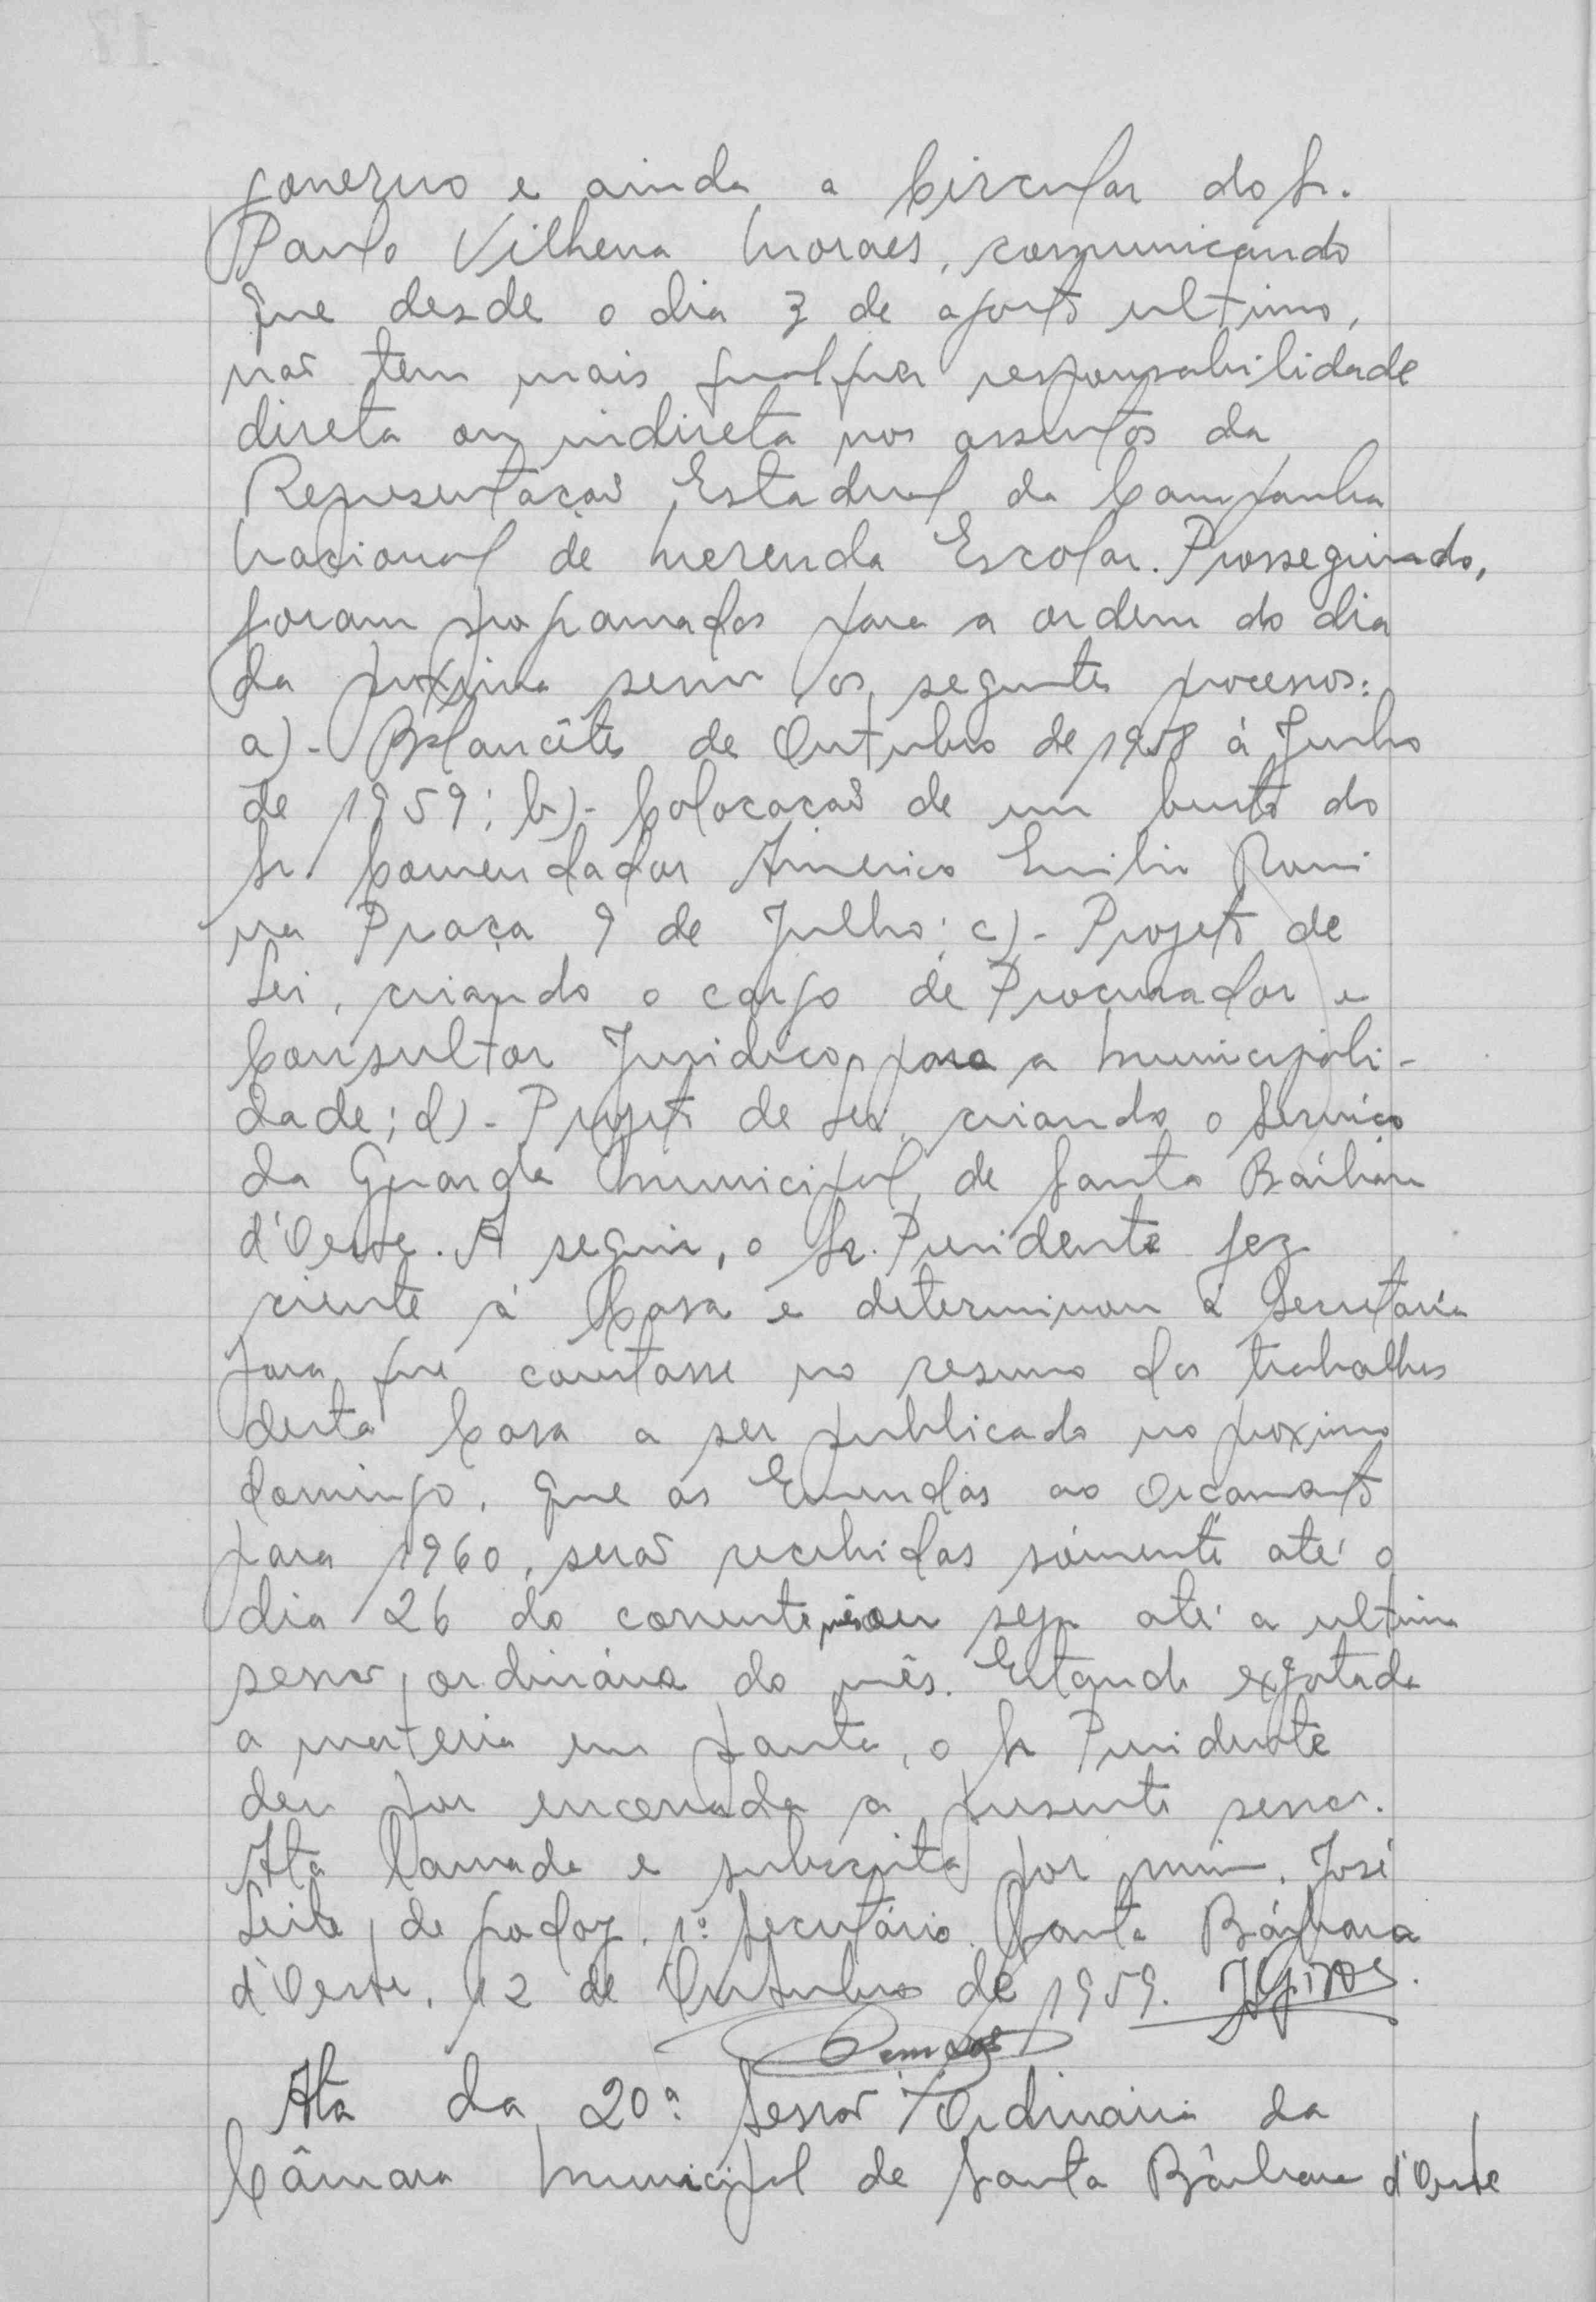 governo e ainda a Circular do Sr.
Paulo Vilhena Moraes, comunicando
que desde o dia 3 de agosto ultimo,
não tem mais qualquer responsabilidade
direta ou indireta nos assuntos da
Representação Estadual da Campanha
Nacional de Merenda Escolar. Prosseguindo,
foram programados para a ordem do dia
da proxima sessão os seguintes processos:
a)- Balancêtes de Outubro de 1958 á Junho
de 1959; b)- Colocação de um busto do
Sr. Comendador Americo Emilio Romi
na Praça 9 de Julho; c)- Projeto de
Lei, criando o cargo de Procurador e
Consultor Juridico para a Municipali-
dade; d)- Projeto de Lei, criando o Serviço
da Guarda Municipal, de Santa Bárbara
d'Oeste. A seguir, o Sr. Presidente fez
ciente á Casa e determinou á Secretaria
para que constasse no resumo dos trabalhos
desta Casa a ser publicado no proximo
domingo, que as Emendas ao Orçamento
para 1960, serão recebidas sómente até o
dia 26 do corrente mês ou seja até a ultima
sessão ordinária do mês. Estando exgotada
a materia em pauta, o Sr Presidente
deu por encerrada a presente sessão.
Ata lavrada e subscrita por mim, José
Leite de Godoy, 1º Secretário. Santa Bárbara
d'Oeste, 12 de Outubro de 1959.
Ata da 20ª Sessão Ordinaria da
Câmara Municipal de Santa Bárbara d'Oeste